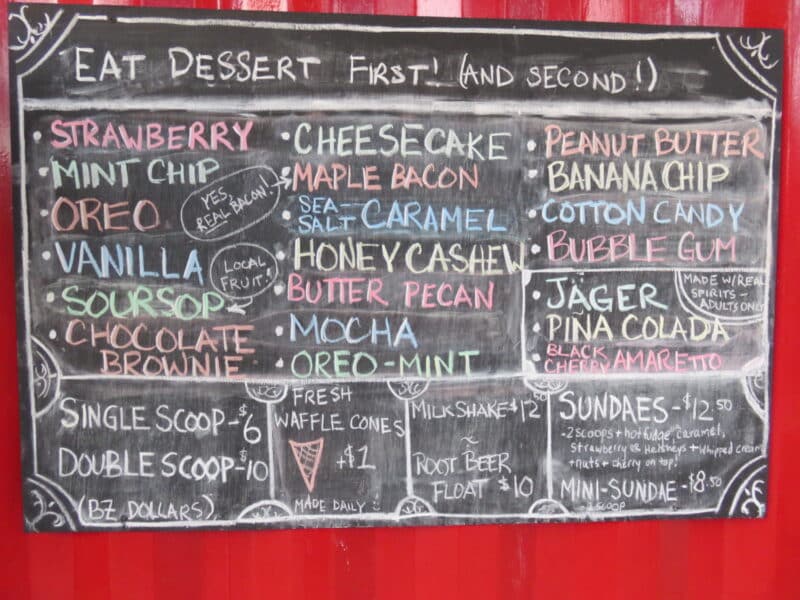 EAT DESSERT FIRST! (AND SECOND!)
• STRAWBERRY
• MINT CHIP
• OREO
• VANILLA
• SOURSOP
• CHOCOLATE
BROWNIE
YES,
REAL BACON!
LOCAL
FRUIT!
• CHEESECAKE
• MAPLE BACON
• SEA-
SALT-CARAMEL
• HONEY CASHEW
• BUTTER PECAN
• MOCHA
• OREO-MINT
• PEANUT BUTTER
• BANANA CHIP
• COTTON CANDY
• BUBBLE GUM
MADE W/REAL
SPIRITS -
ADULTS ONLY
• JÄGER
• PIÑA COLADA
• BLACK
CHERRY AMARETTO
SINGLE SCOOP - $6
DOUBLE SCOOP - $10
(BZ DOLLARS)
FRESH
WAFFLE CONES
+$1
MADE DAILY
MILKSHAKE $12.50
~
ROOT BEER
FLOAT $10
SUNDAES - $12.50
- 2 scoops + hot fudge, caramel,
strawberry or Hersheys + whipped cream
+ nuts + cherry on top!
MINI-SUNDAE - $8.50
- 1 SCOOP